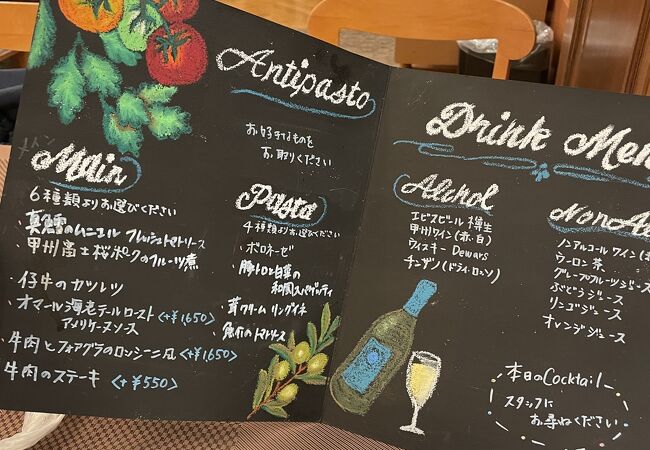 Antipasto
お好きなものを
お取りください
メイン
Main
6種類よりお選びください
真鯛のムニエル フレッシュトマトソース
・甲州富士桜ポークのフルーツ煮
・仔牛のカツレツ
・オマール海老テールロースト <+¥1,650>
アメリケーヌソース
・牛肉とフォアグラのロッシーニ風 <+¥1,650>
牛肉のステーキ <+¥550>
Pasta
4種類よりお選びください
・ボロネーゼ
・豚トロと白菜の
和風スパゲッティ
茸クリーム リングイネ
・魚介のトマトソース
Drink Men
Alcohol
エビスビール 樽生
甲州ワイン(赤・白)
ウィスキー Dewars
チンザノ(ドライ・ロッソ)
NonAl
ノンアルコールワイン(
ウーロン茶
グレープフルーツジュース
ぶどうジュース
リンゴジュース
オレンジジュース
本日のCocktail
スタッフに
お尋ねください